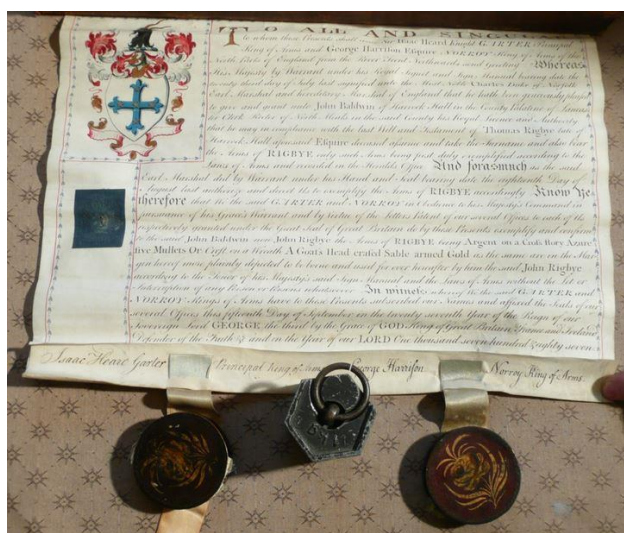 TO ALL AND SINGULAR
to whom these Presents shall come Isaac Heard Knight GARTER Principal
King of Arms and George Harrison Esquire NORROY King of Arms of the
North Parts of England from the River Trent Northwards send Greeting Whereas
His Majesty by Warrant under his Royal Signet and Sign Manual bearing date the
day of July last signified unto the Most Noble Charles Duke of Norfolk
Earl Marshal and hereditary Marshal of England that he hath been graciously pleased
to give and grant unto John Baldwin of Harrock Hall in the County Palatine of Lancas
ter Clerk Rector of North Meols in the said County his Royal Licence and Authority
that he may in compliance with the last Will and Testament of Thomas Rigbye late of
Harrock Hall aforesaid Esquire deceased assume and take the Surname and also bear
the Arms of RIGBYE only such Arms being first duly exemplified according to the
Laws of Arms and recorded in the Heralds Office And forasmuch as the said
Earl Marshal did by Warrant under his Hand and Seal bearing date the eighteenth Day of
August last authorize and direct Us to exemplify the Arms of RIGBYE accordingly Know Ye
therefore that We the said GARTER and NORROY in Obedience to his Majesty's Command in
pursuance of his Grace's Warrant and by virtue of the Letters Patent of our several Offices to each of Us
respectively granted under the Great Seal of Great Britain do by these Presents exemplify and confirm
to the said John Baldwin now John Rigbye the Arms of RIGBYE being Argent on a Cross flory Azure
five Mullets Or Crest on a Wreath A Goats Head erased Sable armed Gold as the same are in the Mar
gin hereof more plainly depicted to be borne and used for ever hereafter by him the said John Rigbye
according to the Tenor of his Majesty's said Sign Manual and the Laws of Arms without the Let or
Interruption of any Person or Persons whatsoever In witness whereof We the said GARTER and
NORROY Kings of Arms have to these Presents subscribed our Names and affixed the Seals of our
several Offices this fifteenth Day of September in the twenty seventh Year of the Reign of our
Sovereign Lord GEORGE the third by the Grace of GOD King of Great Britain France and Ireland
Defender of the Faith &c and in the Year of our LORD One thousand seven hundred Eighty seven
Isaac Heard Garter Principal King of Arms George Harrison Norroy King of Arms.